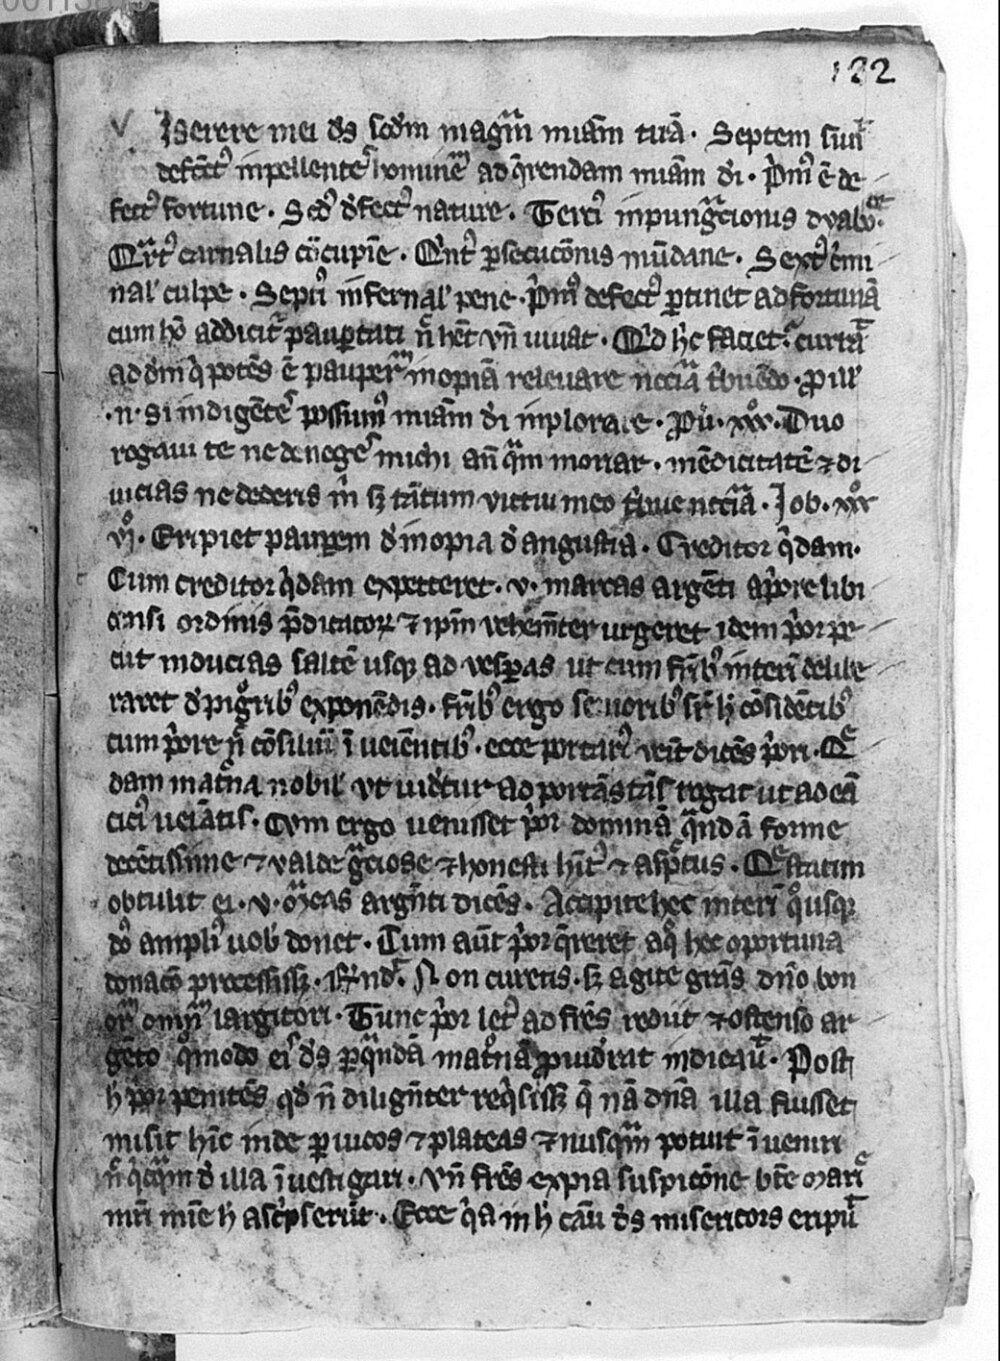 122
Iserere mei ds̄ scd̄m magnā miam̄ tuā. Septem sūt
defect᷒ inpellentes hominē ad q̄rendam miam̄ di. Pⁱm᷒ ē de
fect᷒ fortune. Scd᷒ defect᷒ nature. Terci᷒ inpungnacionis dyabolice.
Qʳt᷒ carnalis ꝯcupīe. Qⁱnt᷒ ꝑsecucōnis mūdane. Sext᷒ cⁱmi
nal' culpe. Septi᷒ infernal' pene. Pⁱm᷒ defect᷒ ꝑtinet ad fortunā
cum hō addicit᷑ pauꝑtati ⁊ n̄ hēt vn̄ vivat. Qⁱd hic faciet. curꝛat
ad dm̄ qⁱ potēs ē pauperum inopiā relevare ncc̄ia tⁱbuēdo. ꝓ ill'
.n. si indigētes possum᷒ miam̄ di inplorare. Pu. xxx. Duo
rogavi te ne deneges michi an̄ qᵃm moriar. mēdicitatē ⁊ di
vicias ne dederis mⁱ sꝫ tātum victui meo tⁱbue ncc̄ia. Job. xxx
vi. Eripiet pauꝑem de inopia de angustia. Creditor qⁱdam.
Cum creditor qⁱdam expeteret .v. marcas argēti a pⁱore libi
censi ordinis p̄dicatoꝝ ⁊ ipm̄ vehemēter urgeret idem pⁱor pe
ciit inducias saltē usqꝫ ad vesꝑas ut cum frīb᷒ interī delibe
raret de pignorib᷒ exponēdis. frīb᷒ ergo seniorib᷒ sup̱ h̊ cōsidētib᷒
cum pⁱore ⁊ n̄ cōsiliū īveiētib᷒. ecce portari᷒ venit dicēs pⁱori. Qᵉ
dam matᵒna nobil' ut videtur ad portā stās rogat ut ad eā
cici᷒ veiātis. Cum ergo venisset pⁱor dominā qᵃndā forme
decētissime ⁊ valde gᵃciose ⁊ honesti hit᷒ ⁊ aspect᷒. Qᵉ statim
obtulit ei .v. mᵃcas argēti dicēs. Accipite hec interī qᵒusqꝫ
ds̄ ampli᷒ vob' donet. Cum aūt pⁱor q̄reret a qᵒ hec oportuna
donacō processissꝫ. Rn̄d'. Non curetis. sꝫ agite grās dnō bon
orum omniū largitori. Tunc pⁱor let᷒ ad frēs rediit ⁊ ostenso ar
gēto qᵒmodo eis ds̄ ꝑ qᵃndā matᵒnā ꝓviderat indicavit. Post
h̊ pⁱor penitēs qd̄ n̄ diligenter reqⁱsissꝫ qᵉ nā dnā illa fuisset
misit hīc inde ꝑ vicos ⁊ plateas ⁊ nusqᵃm potuit īveniri
n̄ qⁱcqᵃm de illa īvestigari. Vn̄ frēs ex pia suspicōne btē mari
mrī mīe h̊ ascⁱpserūt. Ecce qⁱa in h̊ cāu ds̄ misericors eripuit